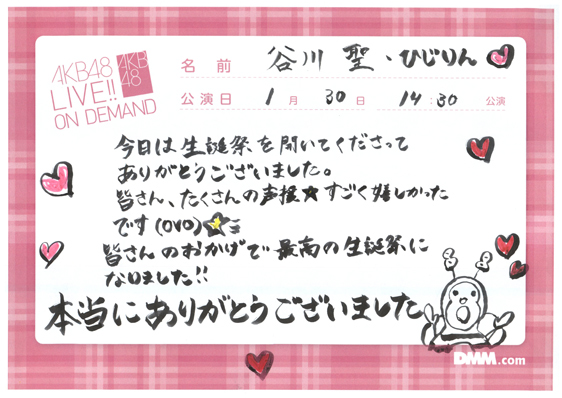 AKB48
LIVE!!
ON DEMAND
AKB
48
名前 谷川 聖・ひじりん
公演日 1月 30日 14:30 公演
今日は生誕祭を開いてくださって
ありがとうございました。
皆さん、たくさんの声援★すごく嬉しかった
です(OVO)
皆さんのおかげで最高の生誕祭に
なりました!!
本当にありがとうございました
DMM.com